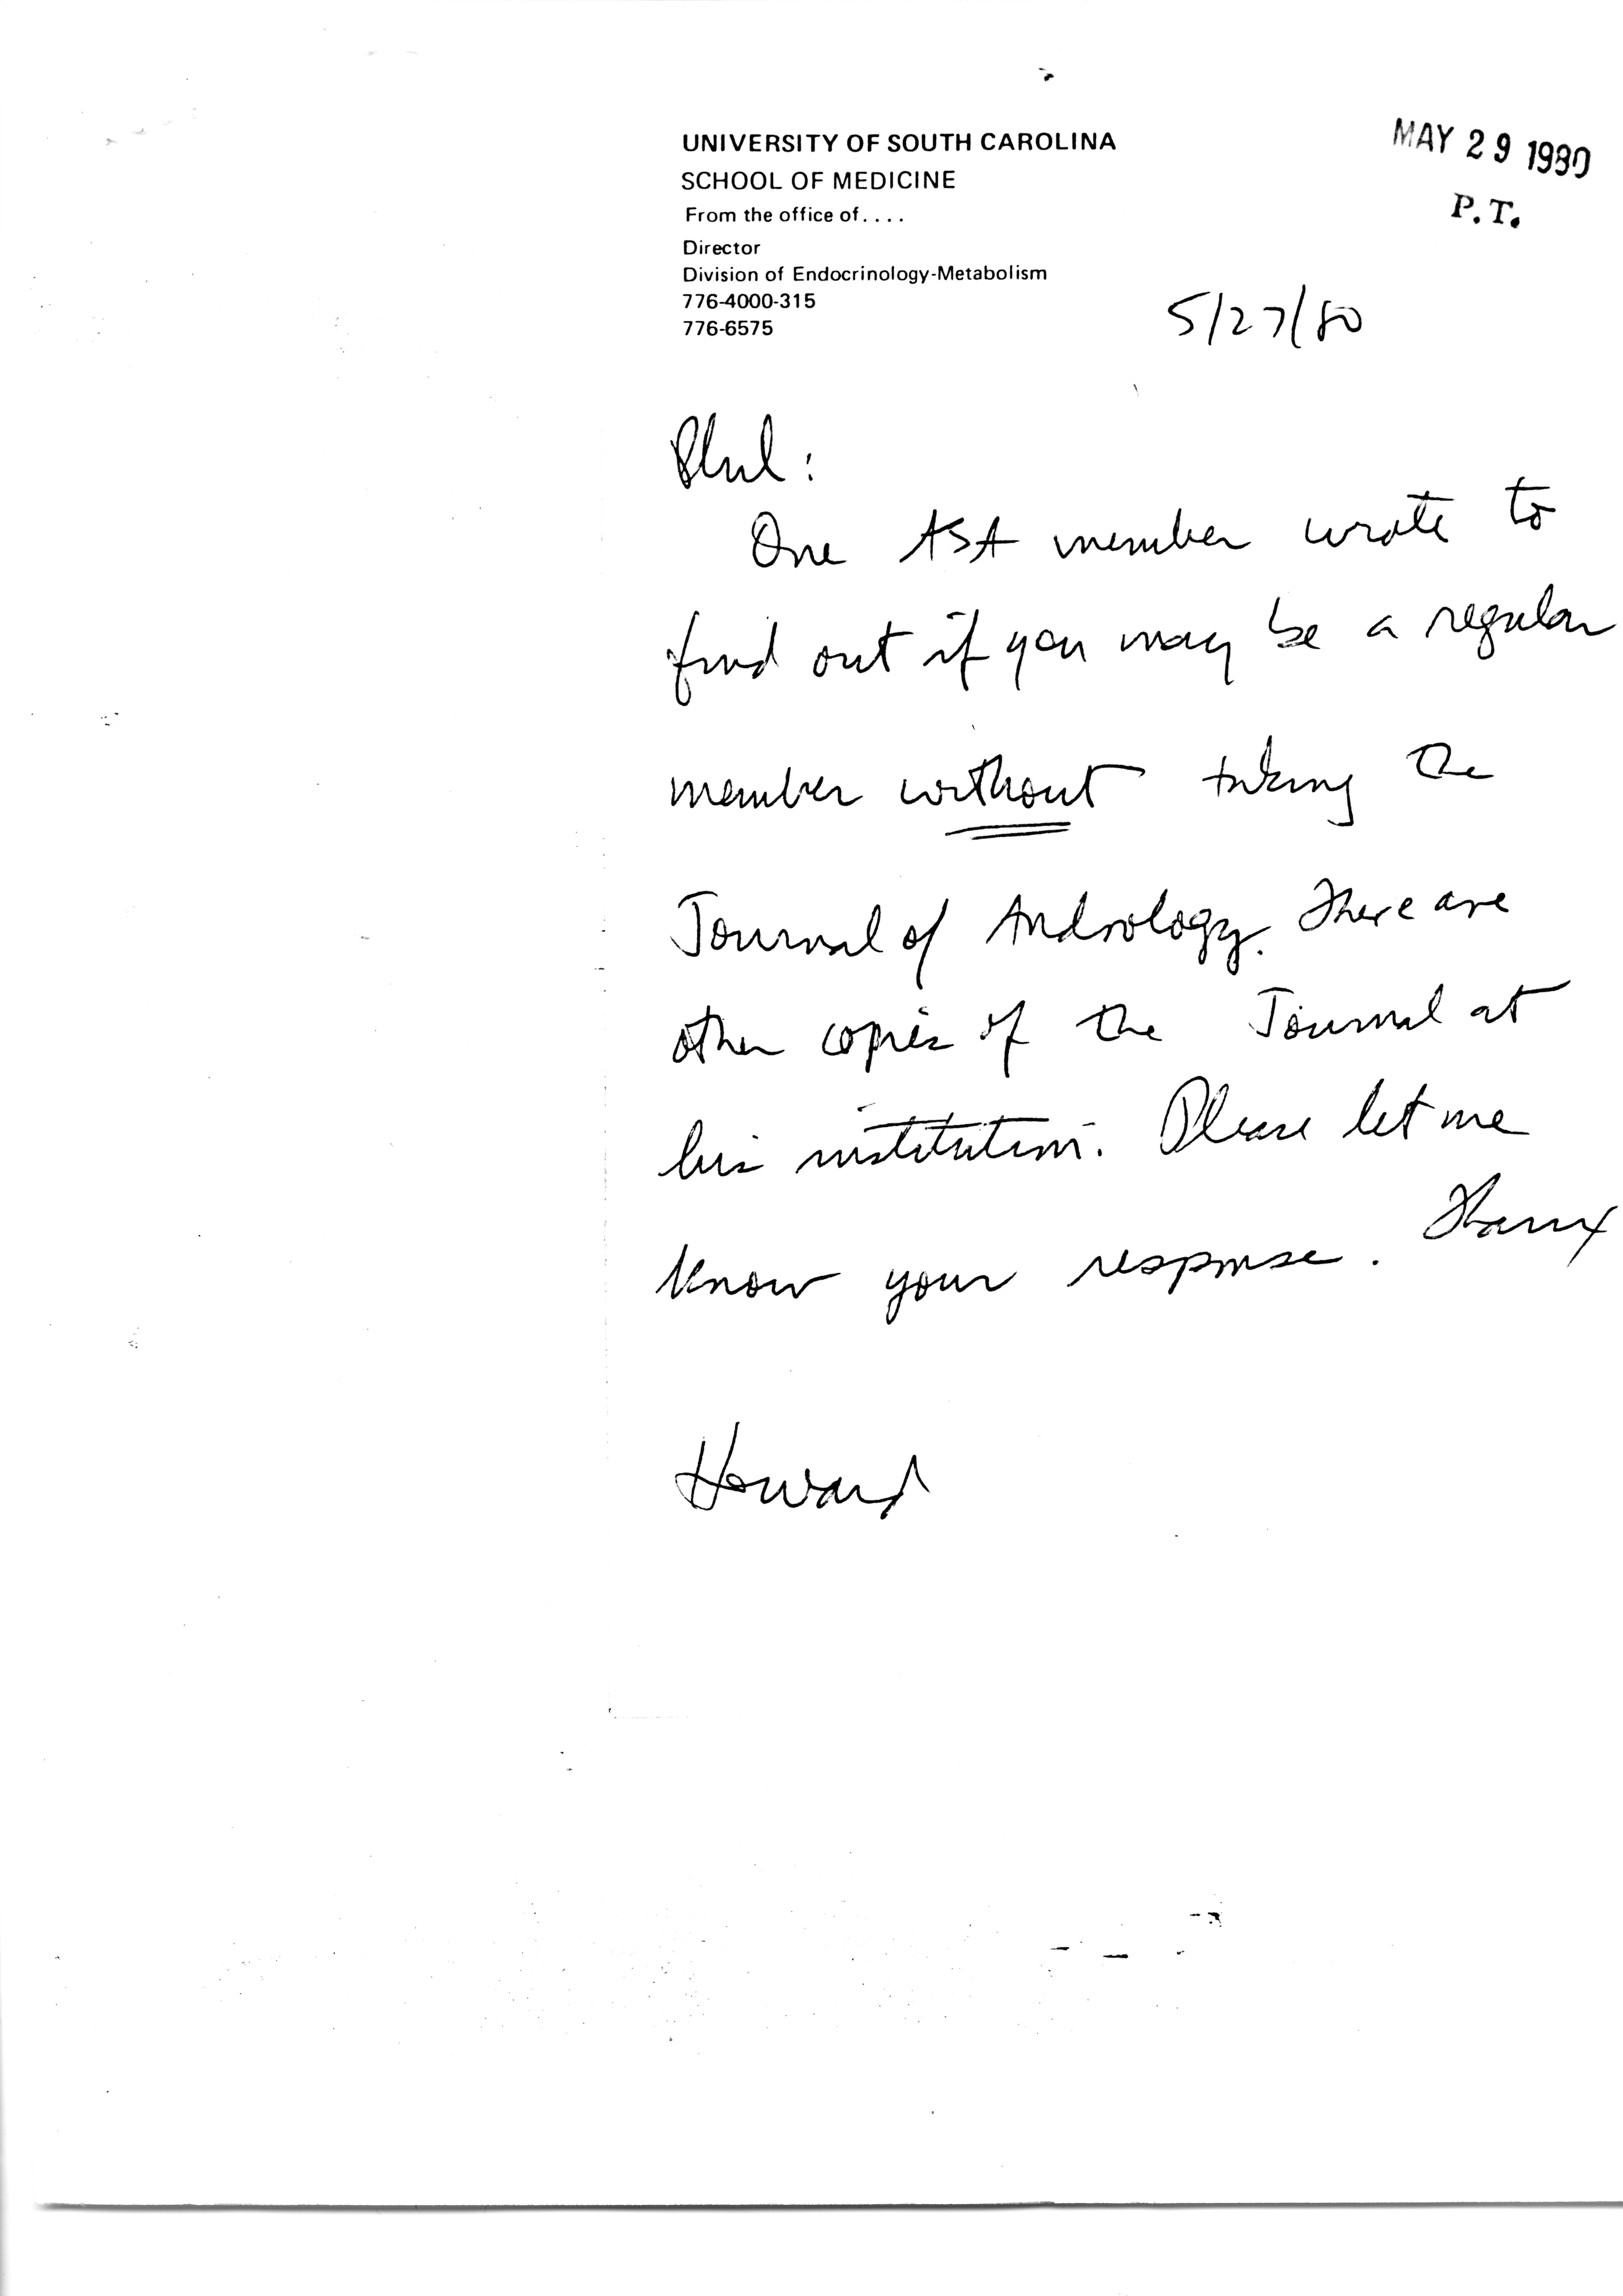 UNIVERSITY OF SOUTH CAROLINA
SCHOOL OF MEDICINE
From the office of....
Director
Division of Endocrinology-Metabolism
776-4000-315
776-6575
MAY 29 1980
P.T.
5/27/80
Phil:
One ASA member wrote to
find out if you may be a regular
member without taking the
Journal of Andrology. There are
other copies of the Journal at
his institution. Please let me
know your response. Thanx
Howard